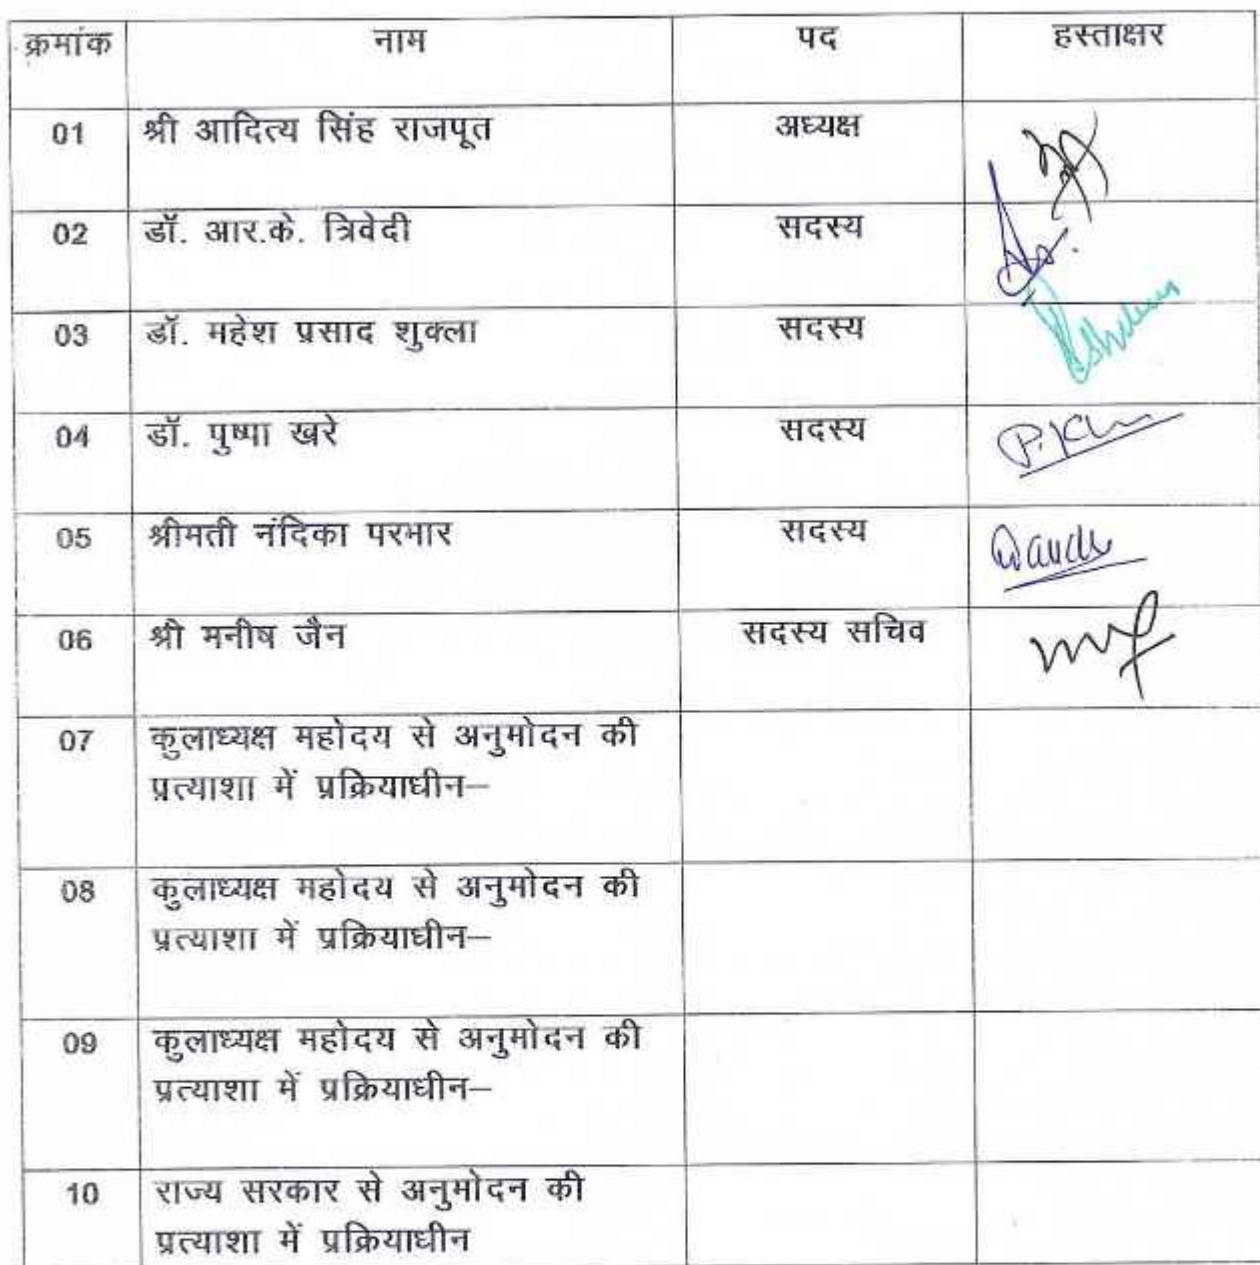 क्रमांक नाम पद हस्ताक्षर
01 श्री आदित्य सिंह राजपूत अध्यक्ष
02 डॉ. आर.के. त्रिवेदी सदस्य
03 डॉ. महेश प्रसाद शुक्ला सदस्य
04 डॉ. पुष्पा खरे सदस्य
05 श्रीमती नंदिका परभार सदस्य
06 श्री मनीष जैन सदस्य सचिव
07 कुलाध्यक्ष महोदय से अनुमोदन की
प्रत्याशा में प्रक्रियाधीन–
08 कुलाध्यक्ष महोदय से अनुमोदन की
प्रत्याशा में प्रक्रियाधीन–
09 कुलाध्यक्ष महोदय से अनुमोदन की
प्रत्याशा में प्रक्रियाधीन–
10 राज्य सरकार से अनुमोदन की
प्रत्याशा में प्रक्रियाधीन